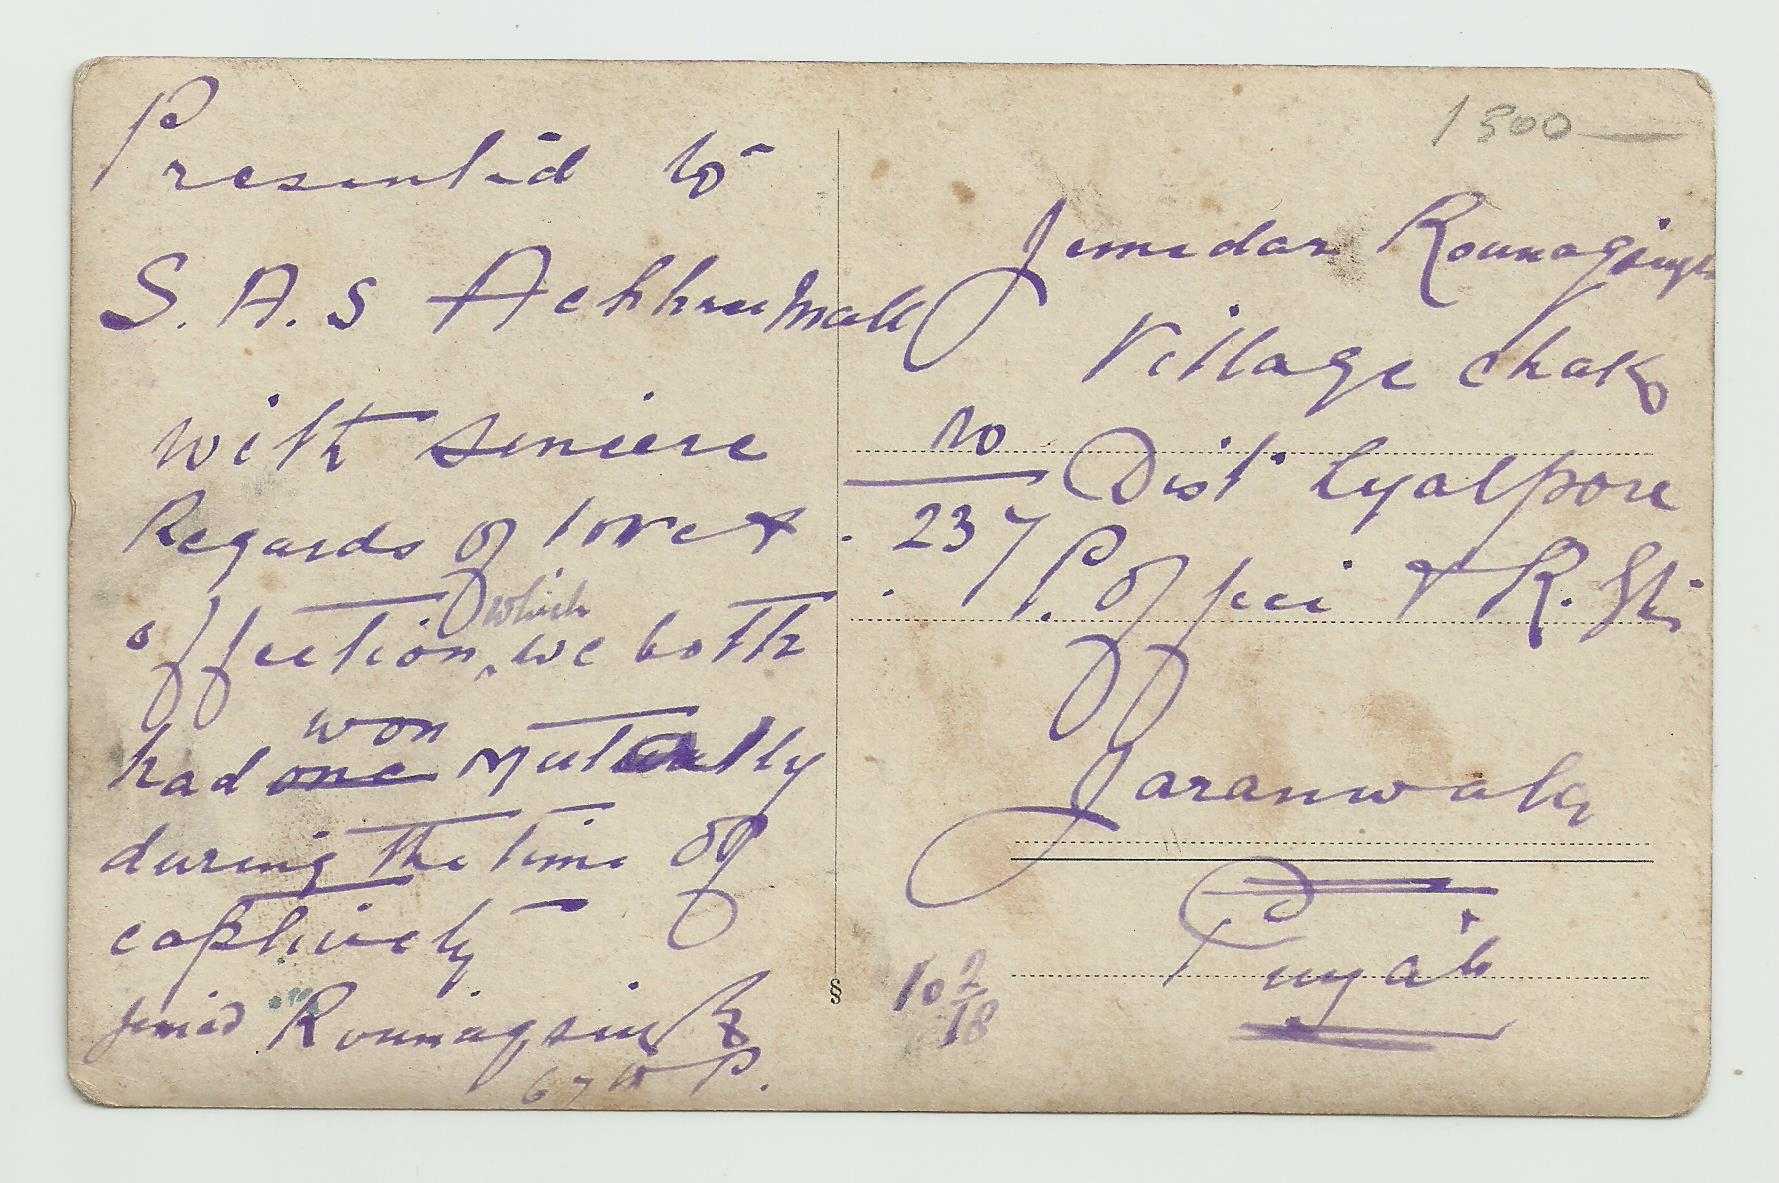 Presented to
S. A. S Achhru Mall
with sincere
Regards of love &
affection, which we both
had won mutually
during the time of
captivety
Jemed Rounaqsingh
67th P.
1300
Jemedar Rounaqsingh
Village Chak
No
237
Dist Lyalpore
P. Offici & R. St:
Jaranwala
Punjab
10 2/18
§